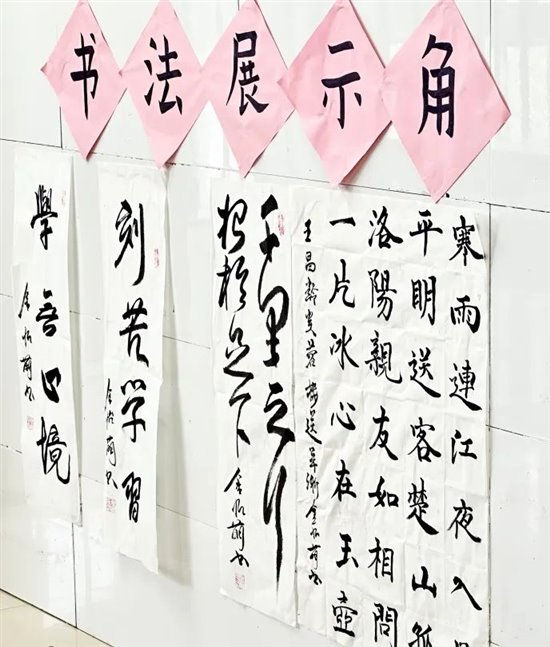 书法展示角
寒雨連江夜入
平明送客楚山孤
洛陽親友如相問
一片冰心在玉壺
王昌齡芙蓉樓送辛漸 金怡萌书
千里之行
始於足下
金怡萌书
刻苦学習
金怡萌书
學無止境
金怡萌书